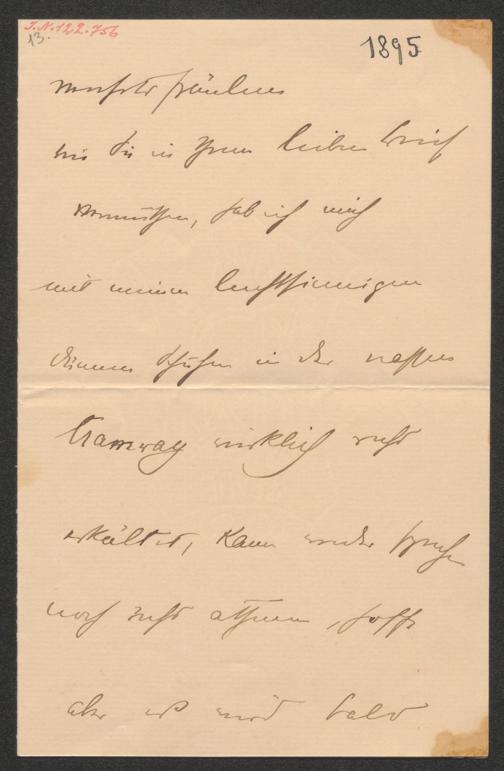 I.N. 122.756
13.
1895
verehrtes Fräulein
wie Sie in Ihrem lieben Brief
vermuthen, hab ich mich
mit meinen leichtsinnigen
dünnen Schuhen in der nassen
Tramway wirklich recht
erkältet, kann weder sprechen
noch recht athmen, hoffe
aber es wird bald